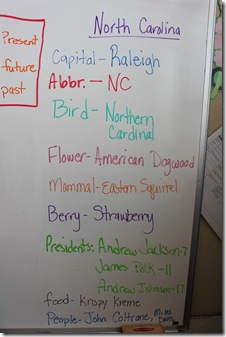 Present
future
past
North Carolina
Capital- Raleigh
Abbr. - NC
Bird- Northern
Cardinal
Flower- American Dogwood
Mammal- Eastern Squirrel
Berry- Strawberry
Presidents: Andrew Jackson-7
James Polk -11
Andrew Johnson-17
food- Krispy Kreme
People- John Coltrane,